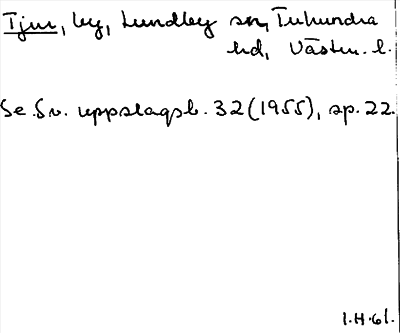 Tjur, by, Lundby sn, Tuhundra
hd, Västm. l.
Se Sv. uppslagsb. 32 (1955), sp. 22.
I.H.61.